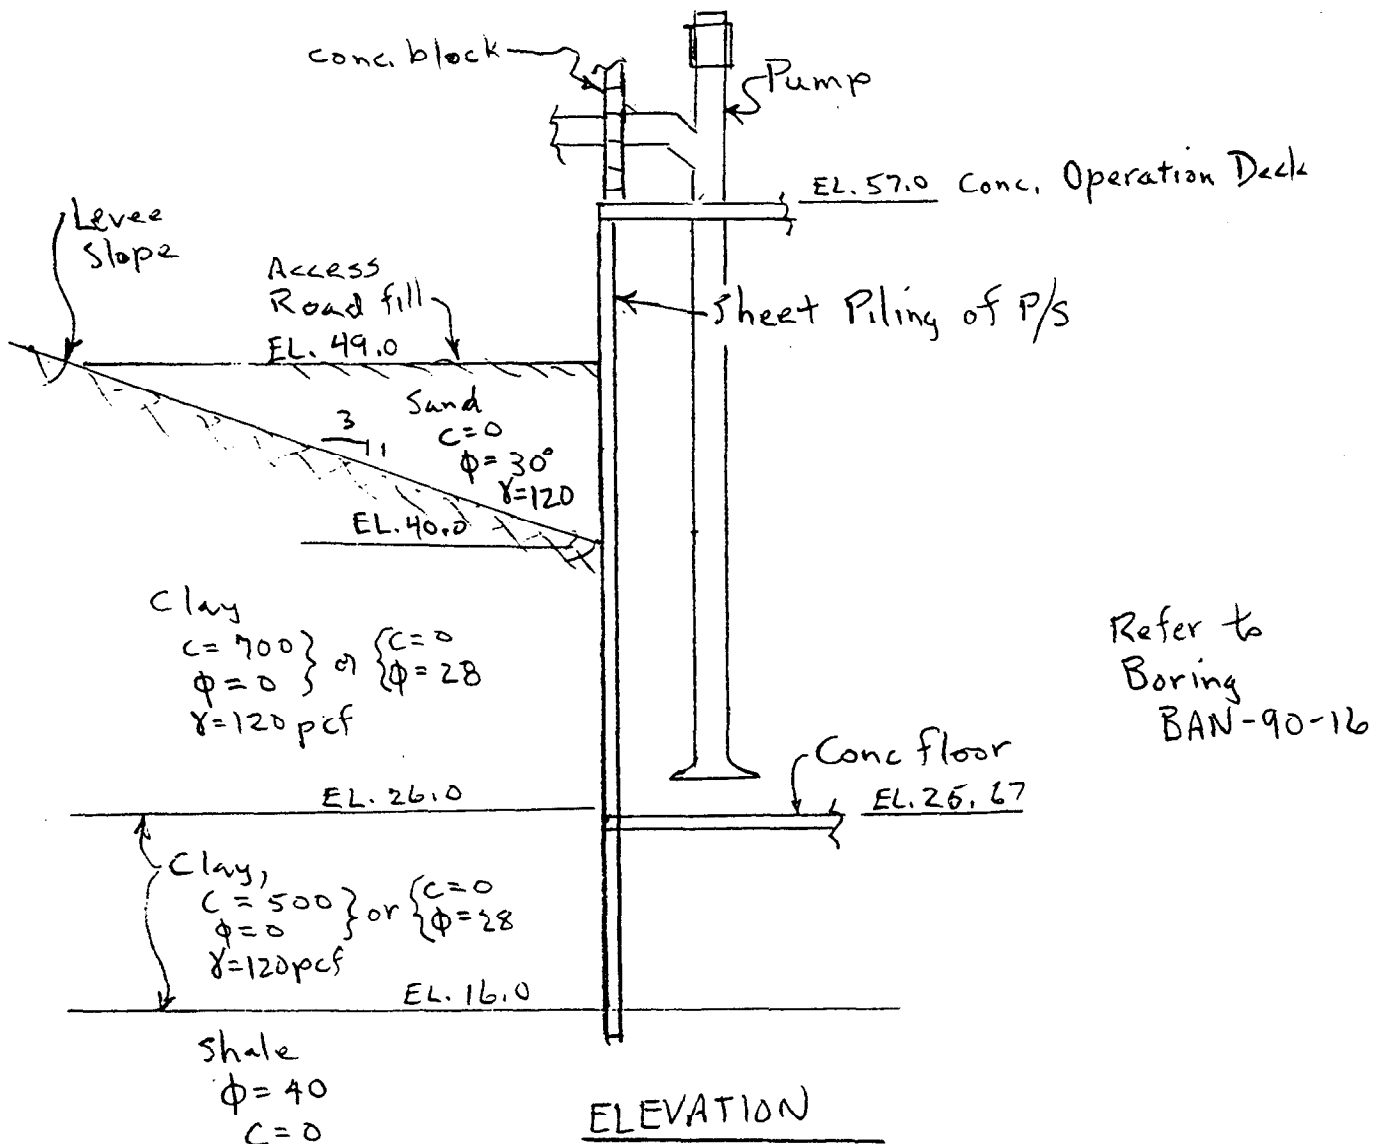 conc. block
Pump
EL. 57.0 Conc. Operation Deck
Levee
Slope
Access
Road fill
EL. 49.0
Sheet Piling of P/S
Sand
C=0
ϕ=30°
γ=120
3
1
EL. 40.0
Clay
C=700 } or { C=0
ϕ=0 } { ϕ=28
γ=120 pcf
Refer to
Boring
BAN-90-16
Conc floor
EL. 26.0
EL. 25.67
Clay,
C=500 } or { C=0
ϕ=0 } { ϕ=28
γ=120 pcf
EL. 16.0
Shale
ϕ=40
C=0
ELEVATION